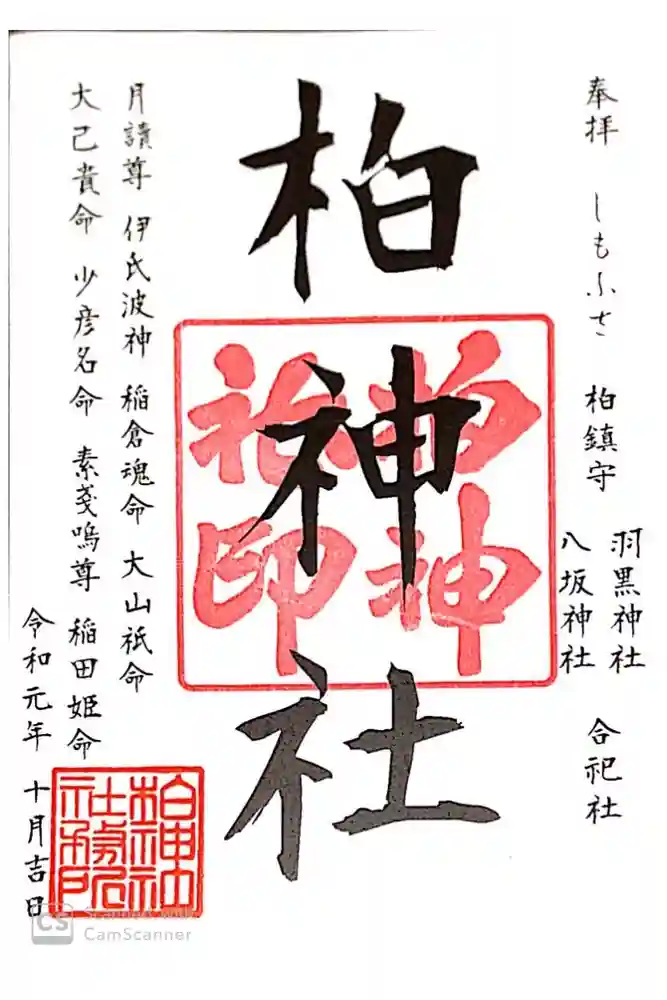 奉拝 しもふさ 柏鎮守
羽黒神社
八坂神社
合祀社
柏神社
柏神
社印
月讀尊 伊氏波神 稲倉魂命 大山祇命
大己貴命 少彦名命 素戔嗚尊 稲田姫命
令和元年 十月吉日
柏神社
社務所
之印
CS Scanned with
CamScanner